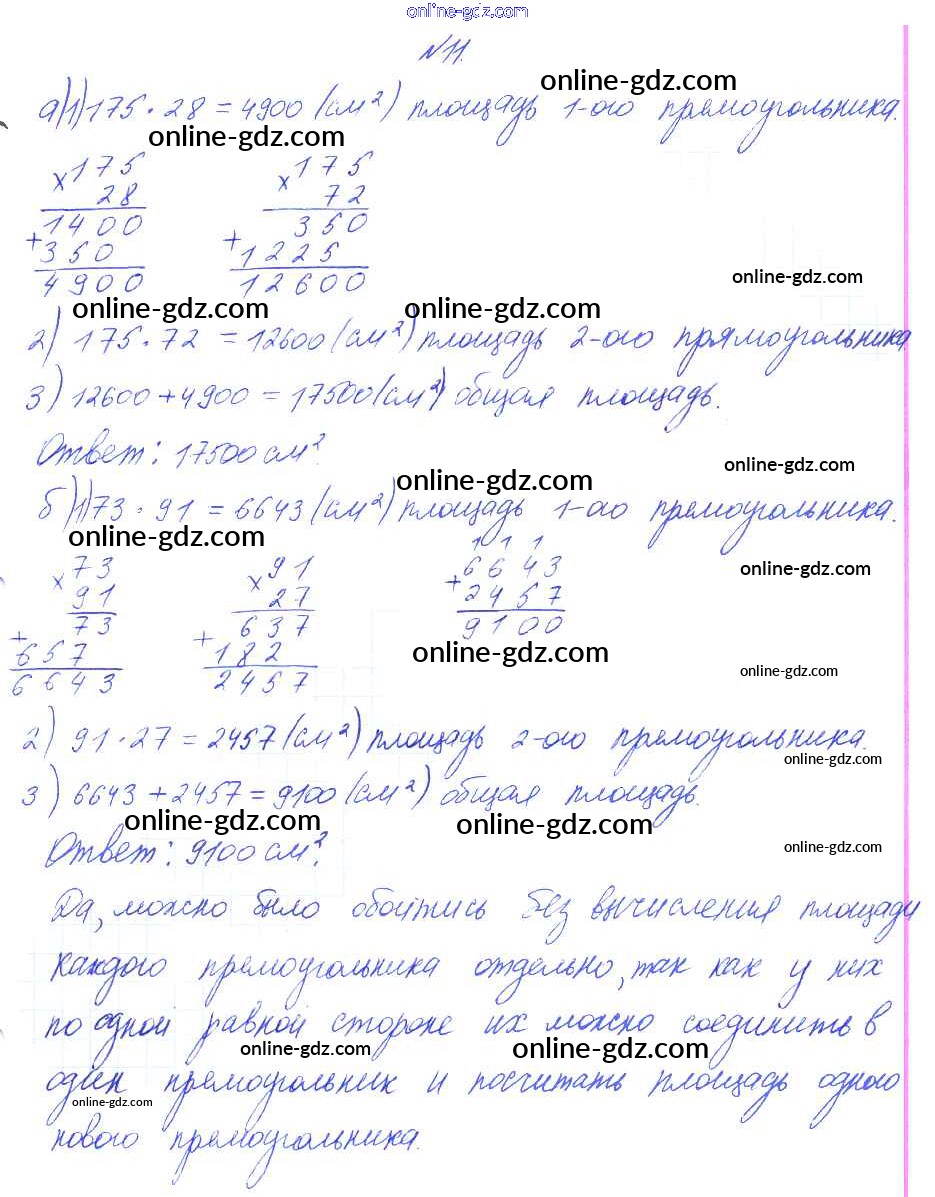 online-gdz.com
№11.
online-gdz.com
а)1) 175 · 28 = 4900 (см²) площадь 1-ого прямоугольника.
online-gdz.com
×175 ×175
28 72
1400 350
+350 +1225
4900 12600
online-gdz.com
online-gdz.com online-gdz.com
2) 175 · 72 = 12600 (см²) площадь 2-ого прямоугольника
3) 12600 + 4900 = 17500 (см²) общая площадь.
Ответ: 17500 см².
online-gdz.com
online-gdz.com
б)1) 73 · 91 = 6643 (см²) площадь 1-ого прямоугольника.
online-gdz.com
1 1 1
×73 ×91 6643
91 27 +2457
73 637 9100
+657 +182
6643 2457
online-gdz.com
online-gdz.com
online-gdz.com
2) 91 · 27 = 2457 (см²) площадь 2-ого прямоугольника.
online-gdz.com
3) 6643 + 2457 = 9100 (см²) общая площадь.
online-gdz.com online-gdz.com
Ответ: 9100 см².
online-gdz.com
Да, можно было обойтись без вычисления площади
каждого прямоугольника отдельно, так как у них
по одной равной стороне их можно соединить в
online-gdz.com online-gdz.com
один прямоугольник и посчитать площадь одного
online-gdz.com
нового прямоугольника.